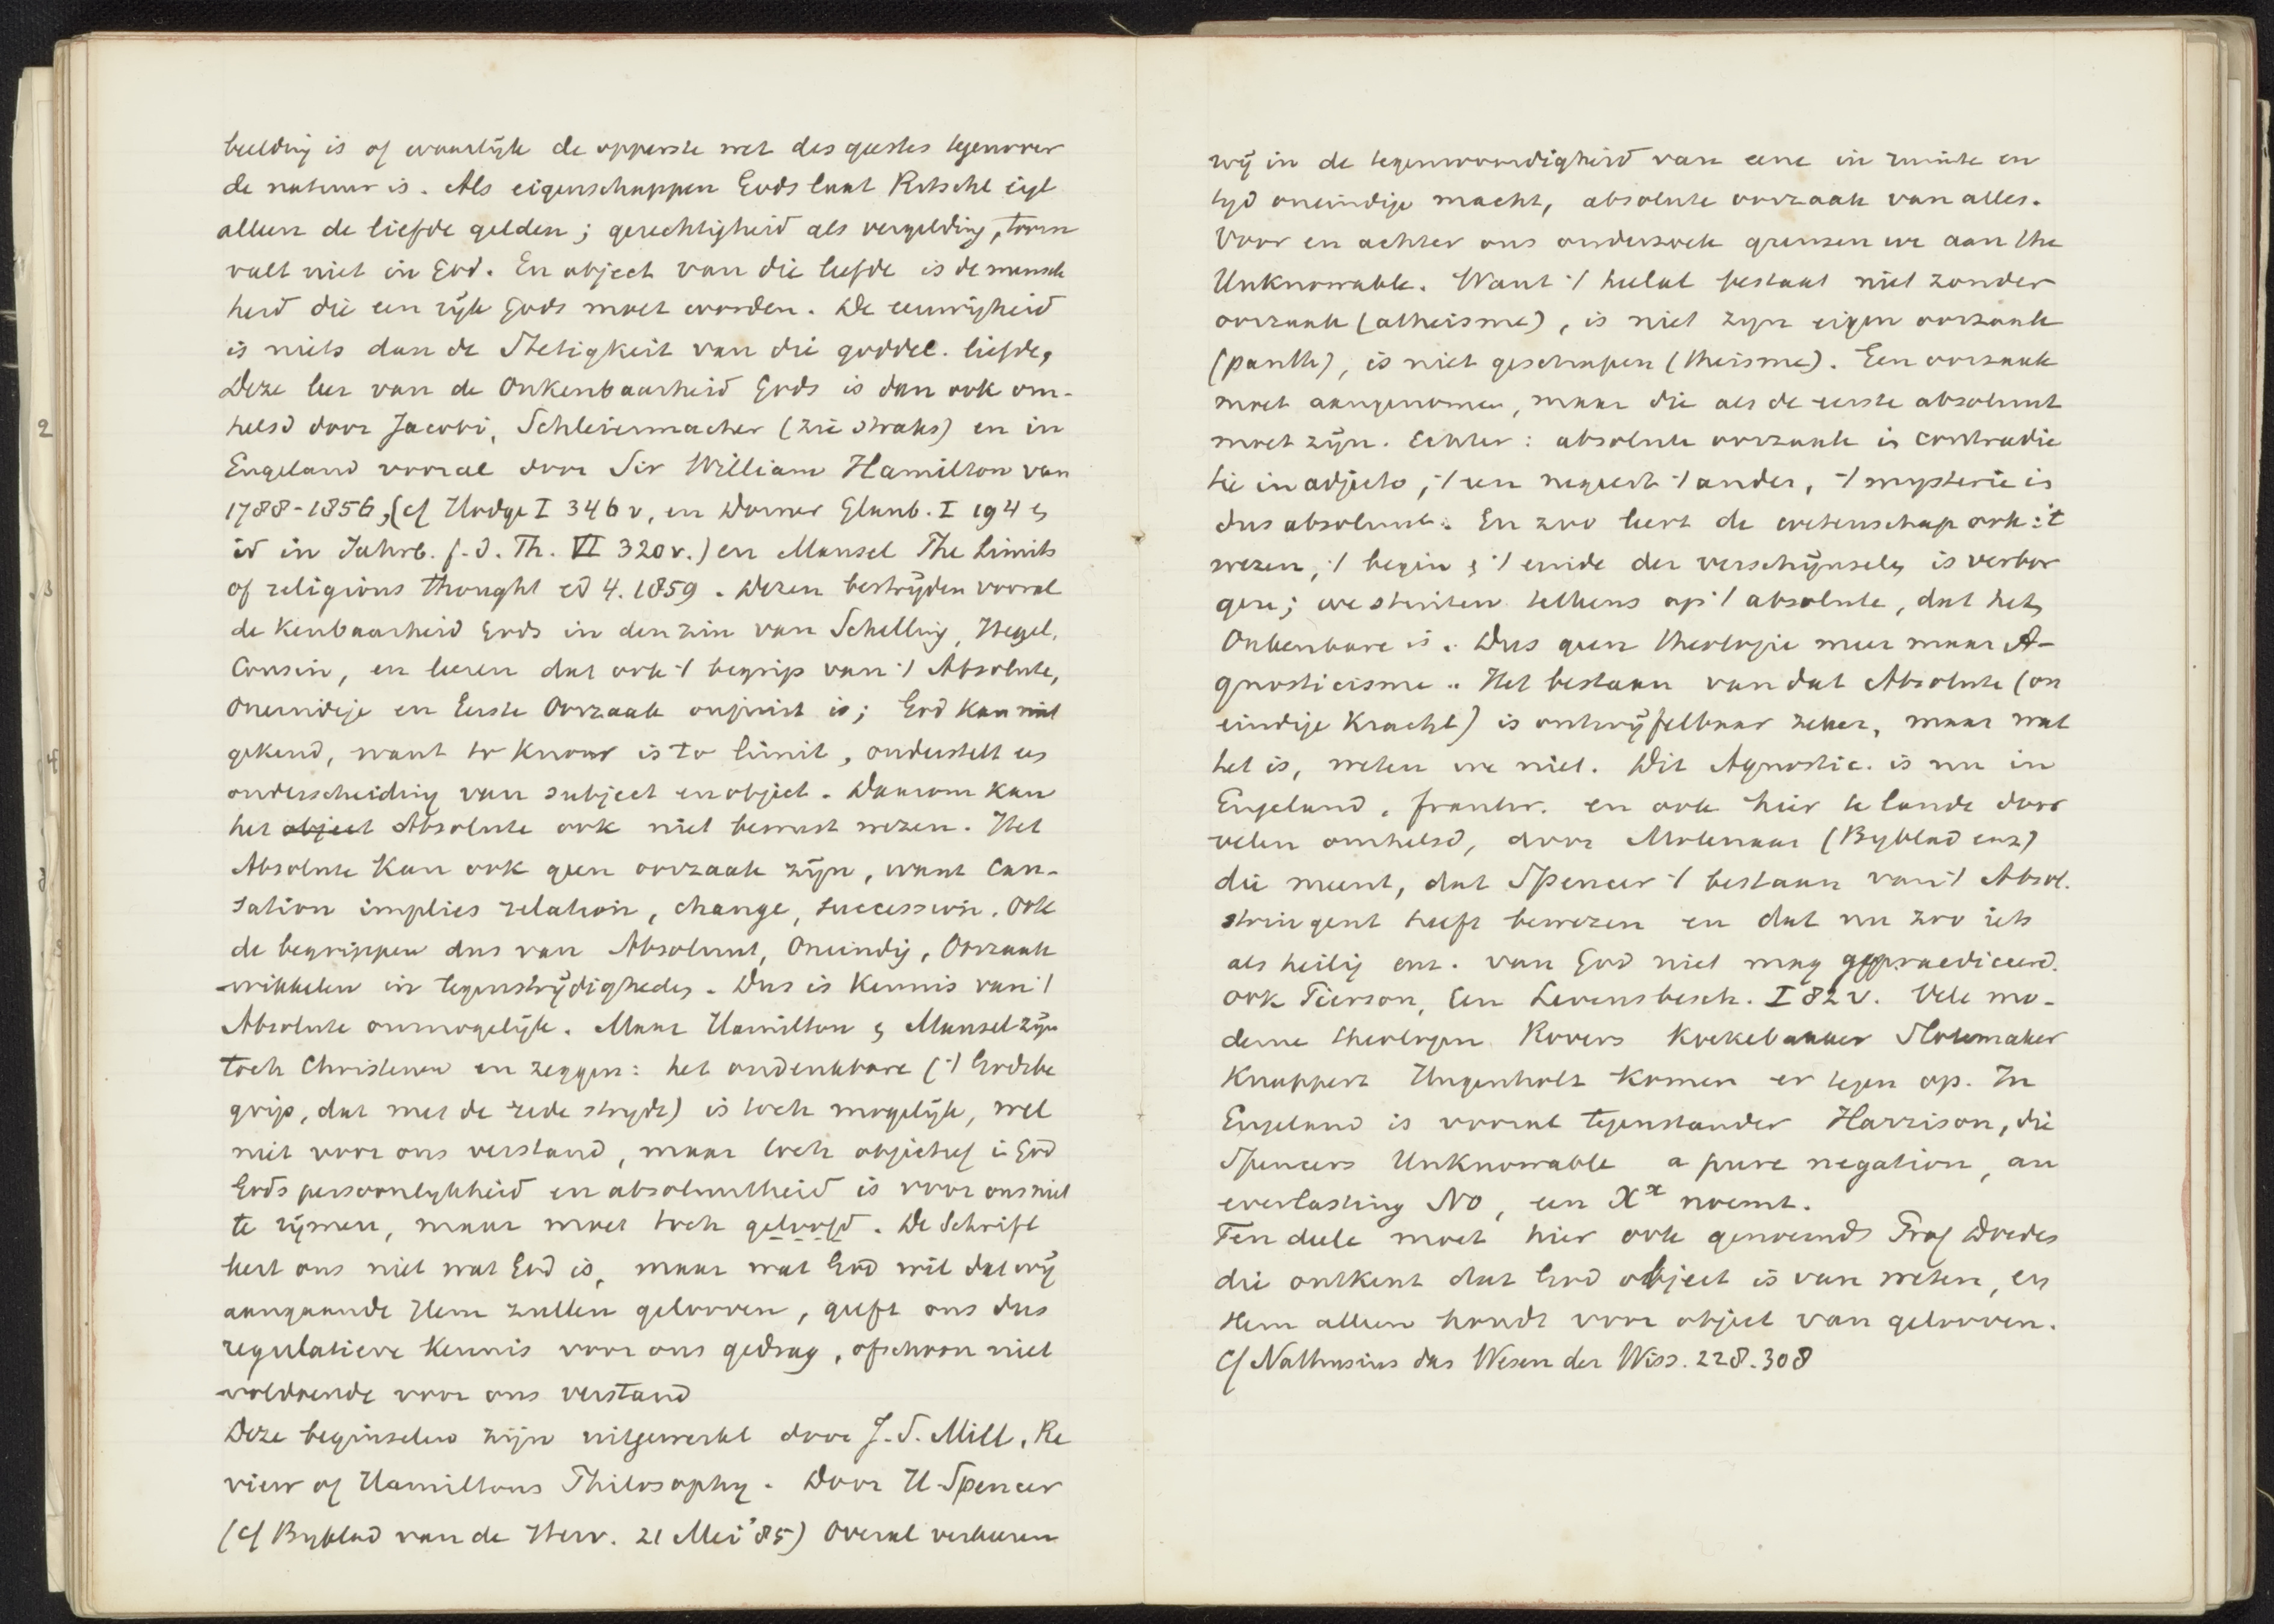 beelding is of waarlijk de opperste wet des geestes tegenover
de natuur is. Als eigenschappen Gods laat Ritschl eigl
alleen de liefde gelden; gerechtigheid als vergelding, toorn
valt niet in God. En object van die liefde is de mensch
heid die een rijk Gods moet worden. De eeuwigheid
is niets dan de Stetigkeit van die goddel. liefde,
Deze leer van de Onkenbaarheid Gods is dan ook om-
helsd door Jacobi, Schleiermacher (zie straks) en in
Engeland vooral door Sir William Hamilton van
1788-1856, (cf Hodge I 346 v, en Dorner Glaub. I 194 en
id in Jahrb. f. d. Th. VI 320 v.) en Mansel The Limits
of religious thought ed 4. 1859. Dezen bestrijden vooral
de Kenbaarheid Gods in den zin van Schelling, Hegel,
Cousin, en leeren dat ook 't begrip van 't Absolute,
Oneindige en Eerste Oorzaak onjuist is; God kan niet
gekend, want to know is to limit, onderstelt een
onderscheiding van subject en object. Daarom kan
het object Absolute ook niet bewust wezen. Het
Absolute kan ook geen oorzaak zijn, want Cau-
sation implies relation, change, succession. Ook
de begrippen dus van Absoluut, Oneindig, Oorzaak
wikkelen in tegenstrijdigheden. Dus is Kennis van 't
Absolute onmogelijk. Maar Hamilton en Mansel zijn
toch Christenen en zeggen: het ondenkbare ('t Godsbe
grip, dat met de rede strijdt) is toch mogelijk, wel
niet voor ons verstand, maar toch objectief in God
Gods persoonlykheid en absoluutheid is voor ons niet
te rijmen, maar moet toch geloofd. De Schrift
leert ons niet wat God is, maar wat God wil dat wij
aangaande Hem zullen gelooven, geeft ons dus
regulatieve kennis voor ons gedrag, ofschoon niet
voldoende voor ons verstand
Deze beginselen zijn uitgewerkt door J. S. Mill, Re
view of Hamiltons Philosophy. Door H. Spencer
(cf Byblad van de Herv. 21 Mei '85) Overal verkeeren
wij in de tegenwoordigheid van eene in ruimte en
tyd oneindige macht, absolute oorzaak van alles.
Voor en achter ons onderzoek grenzen we aan the
Unknowable. Want 't heelal bestaat niet zonder
oorzaak (atheisme), is niet zyn eigen oorzaak
(panth), is niet geschapen (theisme). Een oorzaak
moet aangenomen, maar die als de eerste absoluut
moet zijn. Echter: absolute oorzaak is contradic
tie in adjecto, 't een negeert 't ander, 't mysterie is
dus absoluut. En zoo leert de wetenschap ook: 't
wezen, 't begin en 't einde der verschijnselen is verbor
gen; we stuiten telkens op 't absolute, dat het
Onkenbare is. Dus geen theologie meer maar A-
gnosticisme. Het bestaan van dat Absolute (on
eindige Kracht) is ontwijfelbaar zeker, maar wat
het is, weten we niet. Dit Agnostic. is nu in
Engeland, frankr. en ook hier te lande door
velen omhelsd, door Molenaar (Byblad enz)
die meent, dat Spencer 't bestaan van 't Absol.
stringent heeft bewezen en dat nu zoo iets
als heilig enz. van God niet mag gepraediceerd.
ook Pierson, Een Levensbesch. I 82 v. Vele mo-
derne theologen Rovers Koekebakker Slotemaker
Knappert Hugenholtz komen er tegen op. In
Engeland is vooral tegenstander Harrison, die
Spencers Unknowable a pure negation, an
everlasting No, een Xx noemt.
Ten deele moet hier ook genoemd Prof Doedes
die ontkent dat God object is van weten, en
Hem alleen houdt voor object van gelooven.
Cf Nathusius das Wesen der Wiss. 228-308
2
3
4